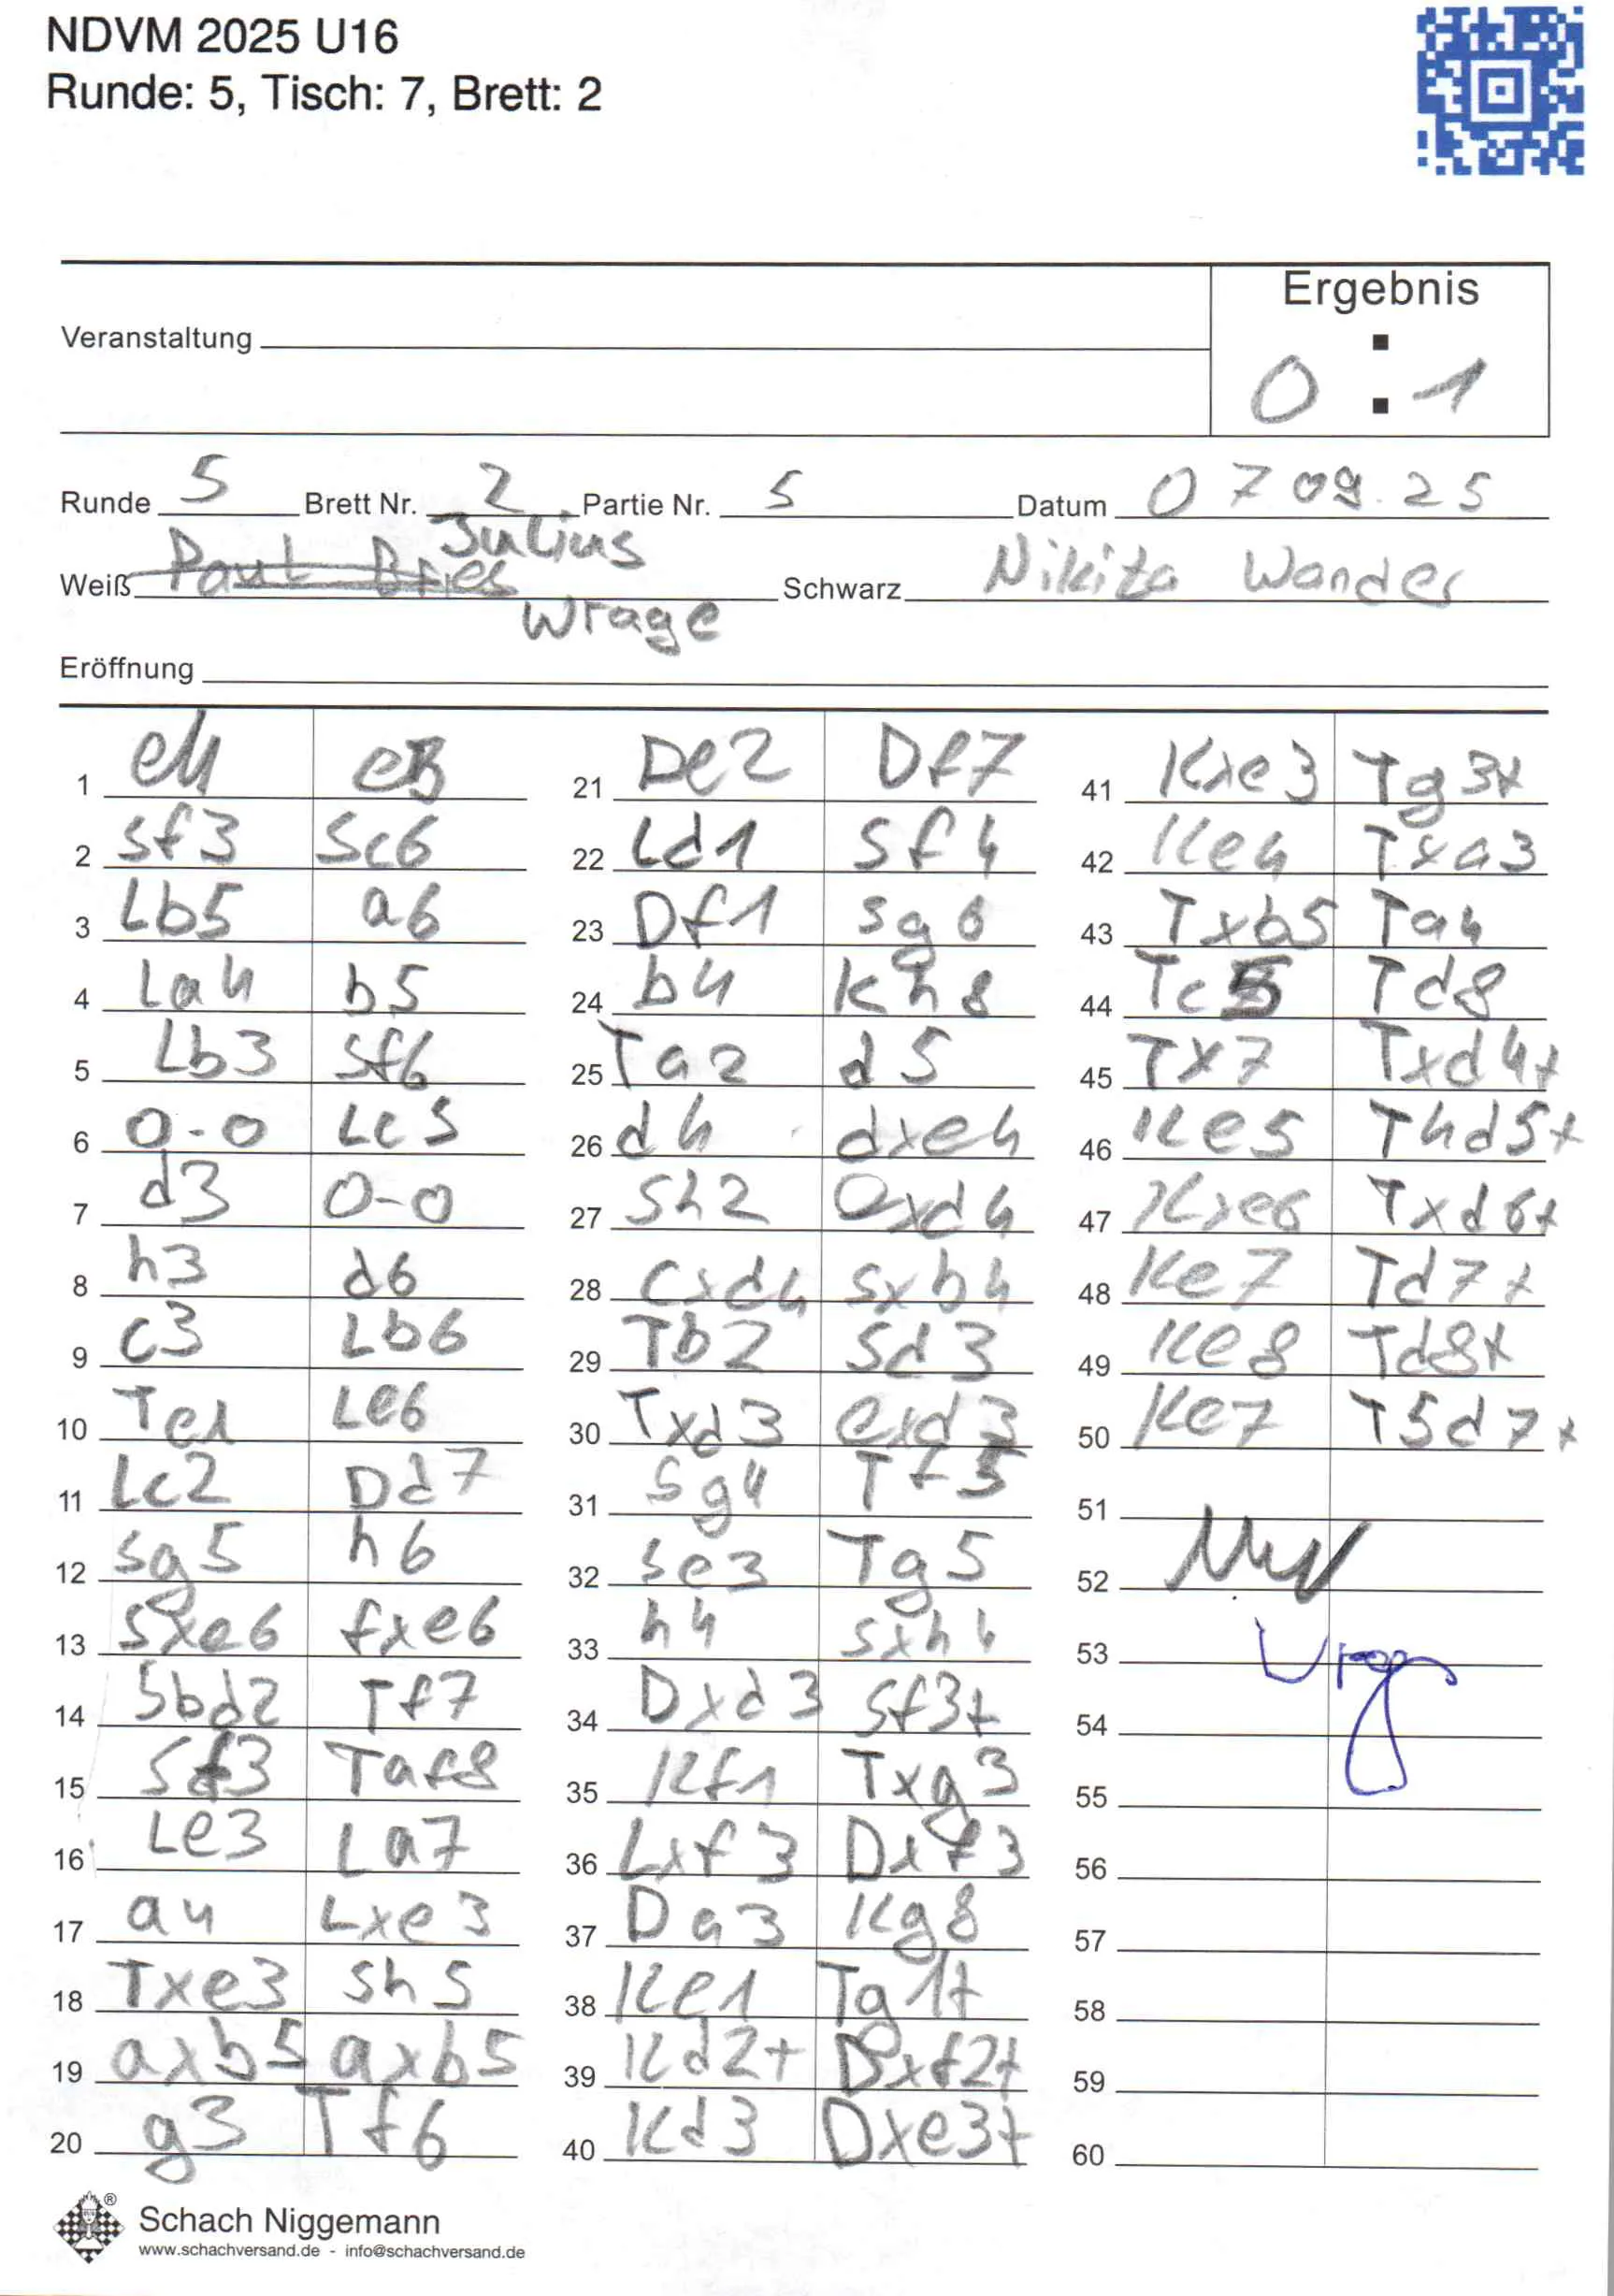 NDVM 2025 U16
Runde: 5, Tisch: 7, Brett: 2
Ergebnis
Veranstaltung
0 : 1
Runde 5 Brett Nr. 2 Partie Nr. 5 Datum 07 09.25
Julius
Weiß Paul Bries Schwarz Nikita Wander
Wrage
Eröffnung
1 e4 e5
2 Sf3 Sc6
3 Lb5 a6
4 La4 b5
5 Lb3 Sf6
6 0-0 Lc5
7 d3 0-0
8 h3 d6
9 c3 Lb6
10 Te1 Le6
11 Lc2 Dd7
12 Sg5 h6
13 Sxe6 fxe6
14 Sbd2 Tf7
15 Sf3 Taf8
16 Le3 La7
17 a4 Lxe3
18 Txe3 Sh5
19 axb5 axb5
20 g3 Tf6
21 De2 Df7
22 Ld1 Sf4
23 Df1 Sg6
24 b4 Kh8
25 Ta2 d5
26 d4 dxe4
27 Sh2 exd4
28 Cxd4 Sxb4
29 Tb2 Sd3
30 Txd3 exd3
31 Sg4 Tf5
32 Se3 Tg5
33 h4 Sxh4
34 Dxd3 Sf3+
35 Kf1 Txg3
36 Lxf3 Dxf3
37 Da3 Kg8
38 Ke1 Tg1+
39 Kd2+ Dxf2+
40 Kd3 Dxe3+
41 Kxe3 Tg3+
42 Ke4 Txa3
43 Txb5 Ta4
44 Tc5 Td8
45 Tx7 Txd4+
46 Ke5 T4d5+
47 Kxe6 Txd6+
48 Ke7 Td7+
49 Ke8 Td8+
50 Ke7 T5d7+
51
52
53 Wrage
54
55
56
57
58
59
60
® Schach Niggemann
www.schachversand.de - info@schachversand.de